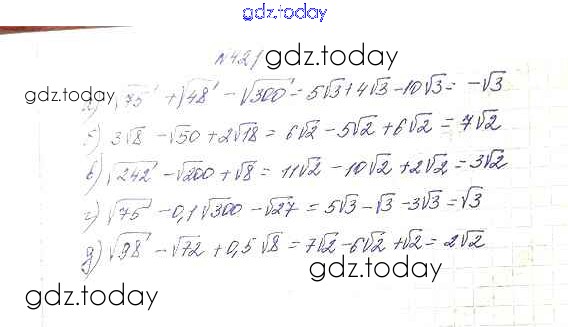 gdz.today
№421
gdz.today
а) √75 + √48 - √300 = 5√3 + 4√3 - 10√3 = -√3
gdz.today
б) 3√8 - √50 + 2√18 = 6√2 - 5√2 + 6√2 = 7√2
в) √242 - √200 + √8 = 11√2 - 10√2 + 2√2 = 3√2
г) √75 - 0,1√300 - √27 = 5√3 - √3 - 3√3 = √3
д) √98 - √72 + 0,5√8 = 7√2 - 6√2 + √2 = 2√2
gdz.today
gdz.today